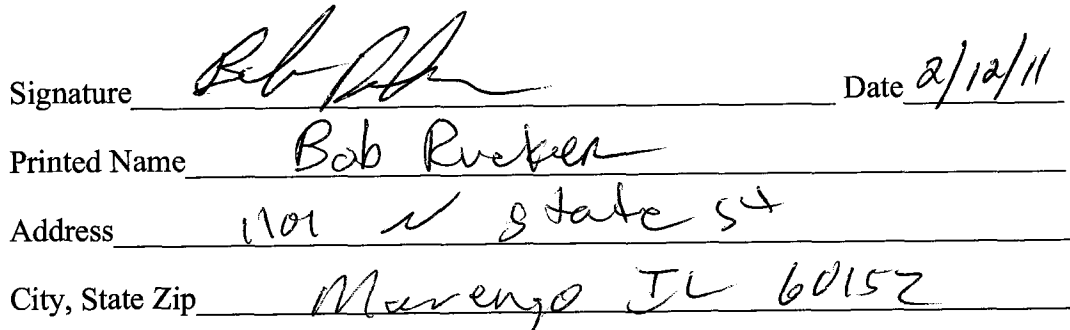 Signature Bob Date 2/12/11
Printed Name Bob Rucker
Address 1101 N State St
City, State Zip Marengo IL 60152